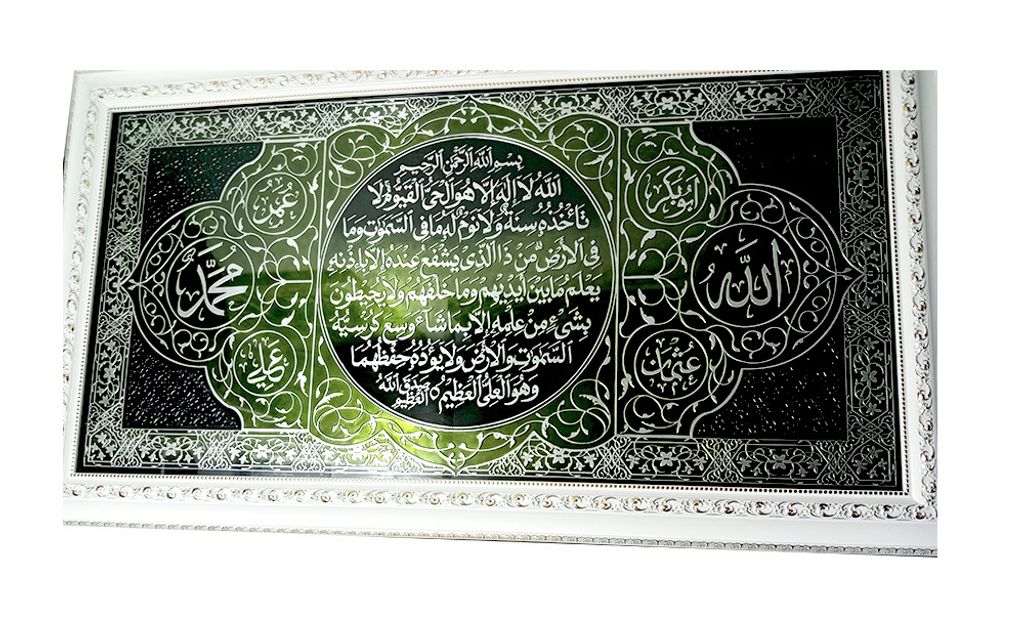 بِسْمِ اللَّهِ الرَّحْمٰنِ الرَّحِيمِ
اَللَّهُ لَا إِلٰهَ إِلَّا هُوَ الْحَيُّ الْقَيُّومُ لَا
تَأْخُذُهُ سِنَةٌ وَلَا نَوْمٌ لَهُ مَا فِي السَّمٰوٰتِ وَمَا
فِي الْأَرْضِ مَنْ ذَا الَّذِي يَشْفَعُ عِنْدَهُ إِلَّا بِإِذْنِهِ
يَعْلَمُ مَا بَيْنَ أَيْدِيهِمْ وَمَا خَلْفَهُمْ وَلَا يُحِيطُونَ
بِشَيْءٍ مِنْ عِلْمِهِ إِلَّا بِمَا شَاءَ وَسِعَ كُرْسِيُّهُ
السَّمٰوٰتِ وَالْأَرْضَ وَلَا يَؤُدُهُ حِفْظُهُمَا
وَهُوَ الْعَلِيُّ الْعَظِيمُ صَدَقَ اللَّهُ الْعَظِيمُ
اللَّه
مُحَمَّد
أَبُو بَكْر
عُمَر
عُثْمٰن
عَلِي